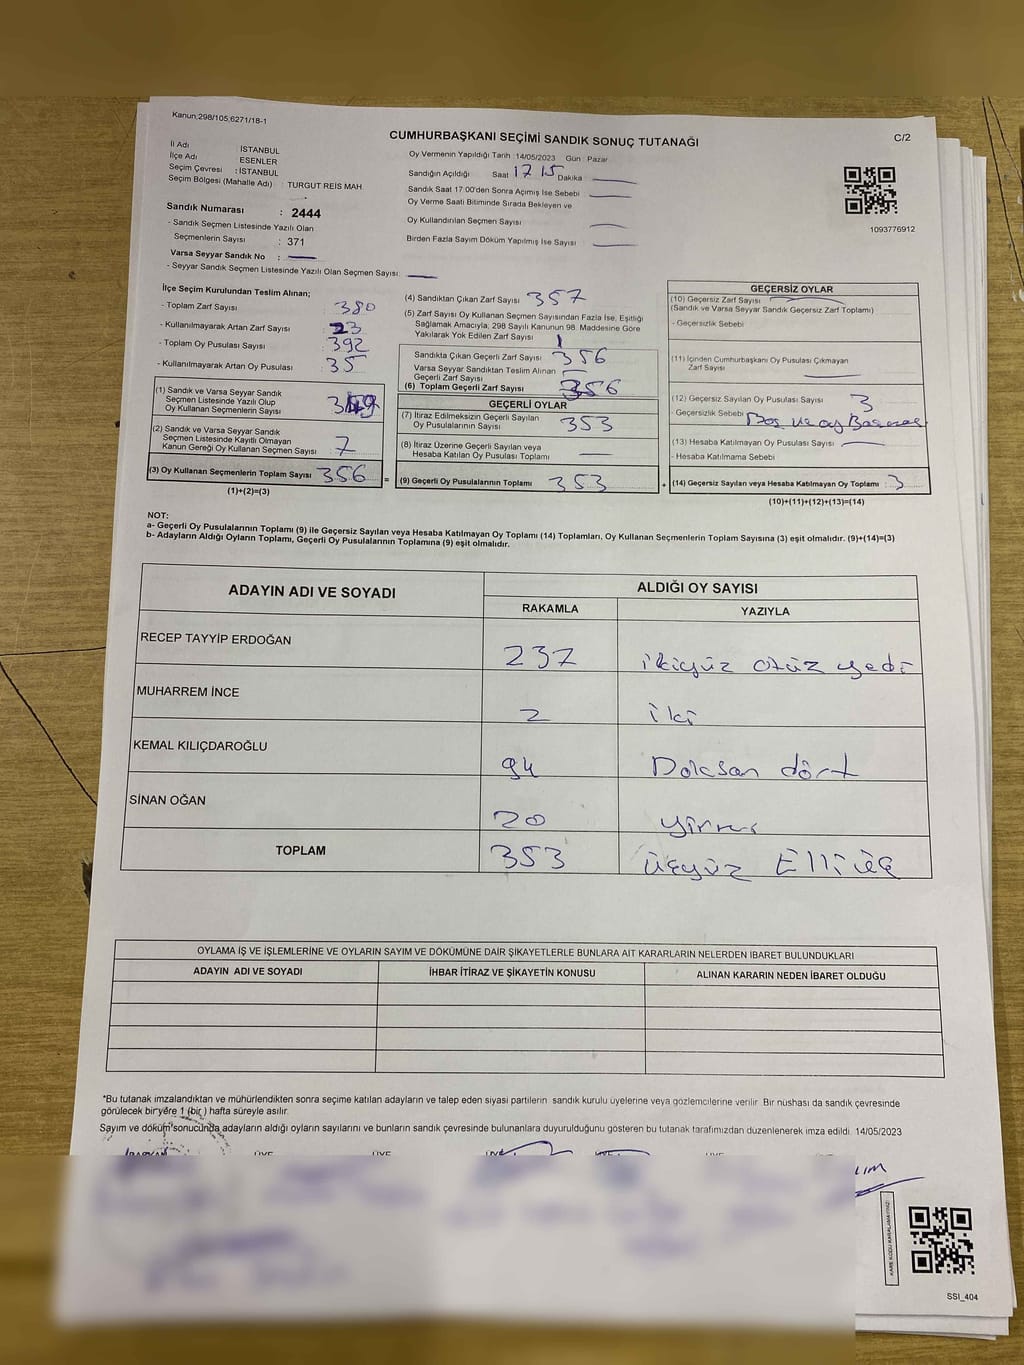 Kanun,298/105,6271/18-1
CUMHURBAŞKANI SEÇİMİ SANDIK SONUÇ TUTANAĞI
C/2
İl Adı : İSTANBUL
İlçe Adı : ESENLER
Seçim Çevresi : İSTANBUL
Seçim Bölgesi (Mahalle Adı) : TURGUT REİS MAH
Sandık Numarası : 2444
- Sandık Seçmen Listesinde Yazılı Olan
Seçmenlerin Sayısı : 371
Varsa Seyyar Sandık No :
- Seyyar Sandık Seçmen Listesinde Yazılı Olan Seçmen Sayısı:
Oy Vermenin Yapıldığı Tarih :14/05/2023 Gün : Pazar
Sandığın Açıldığı Saat 17 15 Dakika
Sandık Saat 17.00'den Sonra Açımış İse Sebebi
Oy Verme Saati Bitiminde Sırada Bekleyen ve
Oy Kullandırılan Seçmen Sayısı
Birden Fazla Sayım Döküm Yapılmış İse Sayısı
1093776912
İlçe Seçim Kurulundan Teslim Alınan;
- Toplam Zarf Sayısı : 380
- Kullanılmayarak Artan Zarf Sayısı : 23
- Toplam Oy Pusulası Sayısı : 392
- Kullanılmayarak Artan Oy Pusulası : 35
(1) Sandık ve Varsa Seyyar Sandık
Seçmen Listesinde Yazılı Olup
Oy Kullanan Seçmenlerin Sayısı : 349
(2) Sandık ve Varsa Seyyar Sandık
Seçmen Listesinde Kayıtlı Olmayan
Kanun Gereği Oy Kullanan Seçmen Sayısı : 7
(3) Oy Kullanan Seçmenlerin Toplam Sayısı : 356
(1)+(2)=(3)
(4) Sandıktan Çıkan Zarf Sayısı : 357
(5) Zarf Sayısı Oy Kullanan Seçmen Sayısından Fazla İse, Eşitliği
Sağlamak Amacıyla; 298 Sayılı Kanunun 98. Maddesine Göre
Yakılarak Yok Edilen Zarf Sayısı : 1
Sandıkta Çıkan Geçerli Zarf Sayısı : 356
Varsa Seyyar Sandıktan Teslim Alınan
Geçerli Zarf Sayısı
(6) Toplam Geçerli Zarf Sayısı : 356
GEÇERLİ OYLAR
(7) İtiraz Edilmeksizin Geçerli Sayılan
Oy Pusulalarının Sayısı : 353
(8) İtiraz Üzerine Geçerli Sayılan veya
Hesaba Katılan Oy Pusulası Toplamı
= (9) Geçerli Oy Pusulalarının Toplamı : 353
GEÇERSİZ OYLAR
(10) Geçersiz Zarf Sayısı
(Sandık ve Varsa Seyyar Sandık Geçersiz Zarf Toplamı)
- Geçersizlik Sebebi
(11) İçinden Cumhurbaşkanı Oy Pusulası Çıkmayan
Zarf Sayısı
(12) Geçersiz Sayılan Oy Pusulası Sayısı : 3
- Geçersizlik Sebebi Boş ve
(13) Hesaba Katılmayan Oy Pusulası Sayısı
- Hesaba Katılmama Sebebi
+ (14) Geçersiz Sayılan veya Hesaba Katılmayan Oy Toplamı : 3
(10)+(11)+(12)+(13)=(14)
NOT:
a- Geçerli Oy Pusulalarının Toplamı (9) ile Geçersiz Sayılan veya Hesaba Katılmayan Oy Toplamı (14) Toplamları, Oy Kullanan Seçmenlerin Toplam Sayısına (3) eşit olmalıdır. (9)+(14)=(3)
b- Adayların Aldığı Oyların Toplamı, Geçerli Oy Pusulalarının Toplamına (9) eşit olmalıdır.
ADAYIN ADI VE SOYADI ALDIĞI OY SAYISI
RAKAMLA YAZIYLA
RECEP TAYYİP ERDOĞAN 237 ikiyüz otuz yedi
MUHARREM İNCE 2 iki
KEMAL KILIÇDAROĞLU 94 Doksan dört
SİNAN OĞAN 20 yirmi
TOPLAM 353 üçyüz Elli üç
OYLAMA İŞ VE İŞLEMLERİNE VE OYLARIN SAYIM VE DÖKÜMÜNE DAİR ŞİKAYETLERLE BUNLARA AİT KARARLARIN NELERDEN İBARET BULUNDUKLARI
ADAYIN ADI VE SOYADI İHBAR İTİRAZ VE ŞİKAYETİN KONUSU ALINAN KARARIN NEDEN İBARET OLDUĞU
*Bu tutanak imzalandıktan ve mühürlendikten sonra seçime katılan adayların ve talep eden siyasi partilerin sandık kurulu üyelerine veya gözlemcilerine verilir. Bir nüshası da sandık çevresinde
görülecek bir yere 1 (bir ) hafta süreyle asılır.
Sayım ve döküm sonucunda adayların aldığı oyların sayılarını ve bunların sandık çevresinde bulunanlara duyurulduğunu gösteren bu tutanak tarafımızdan düzenlenerek imza edildi. 14/05/2023
BAŞKAN ÜYE ÜYE ÜYE ÜYE
KARE KODU KARALAMAYINIZ!
SSI_404